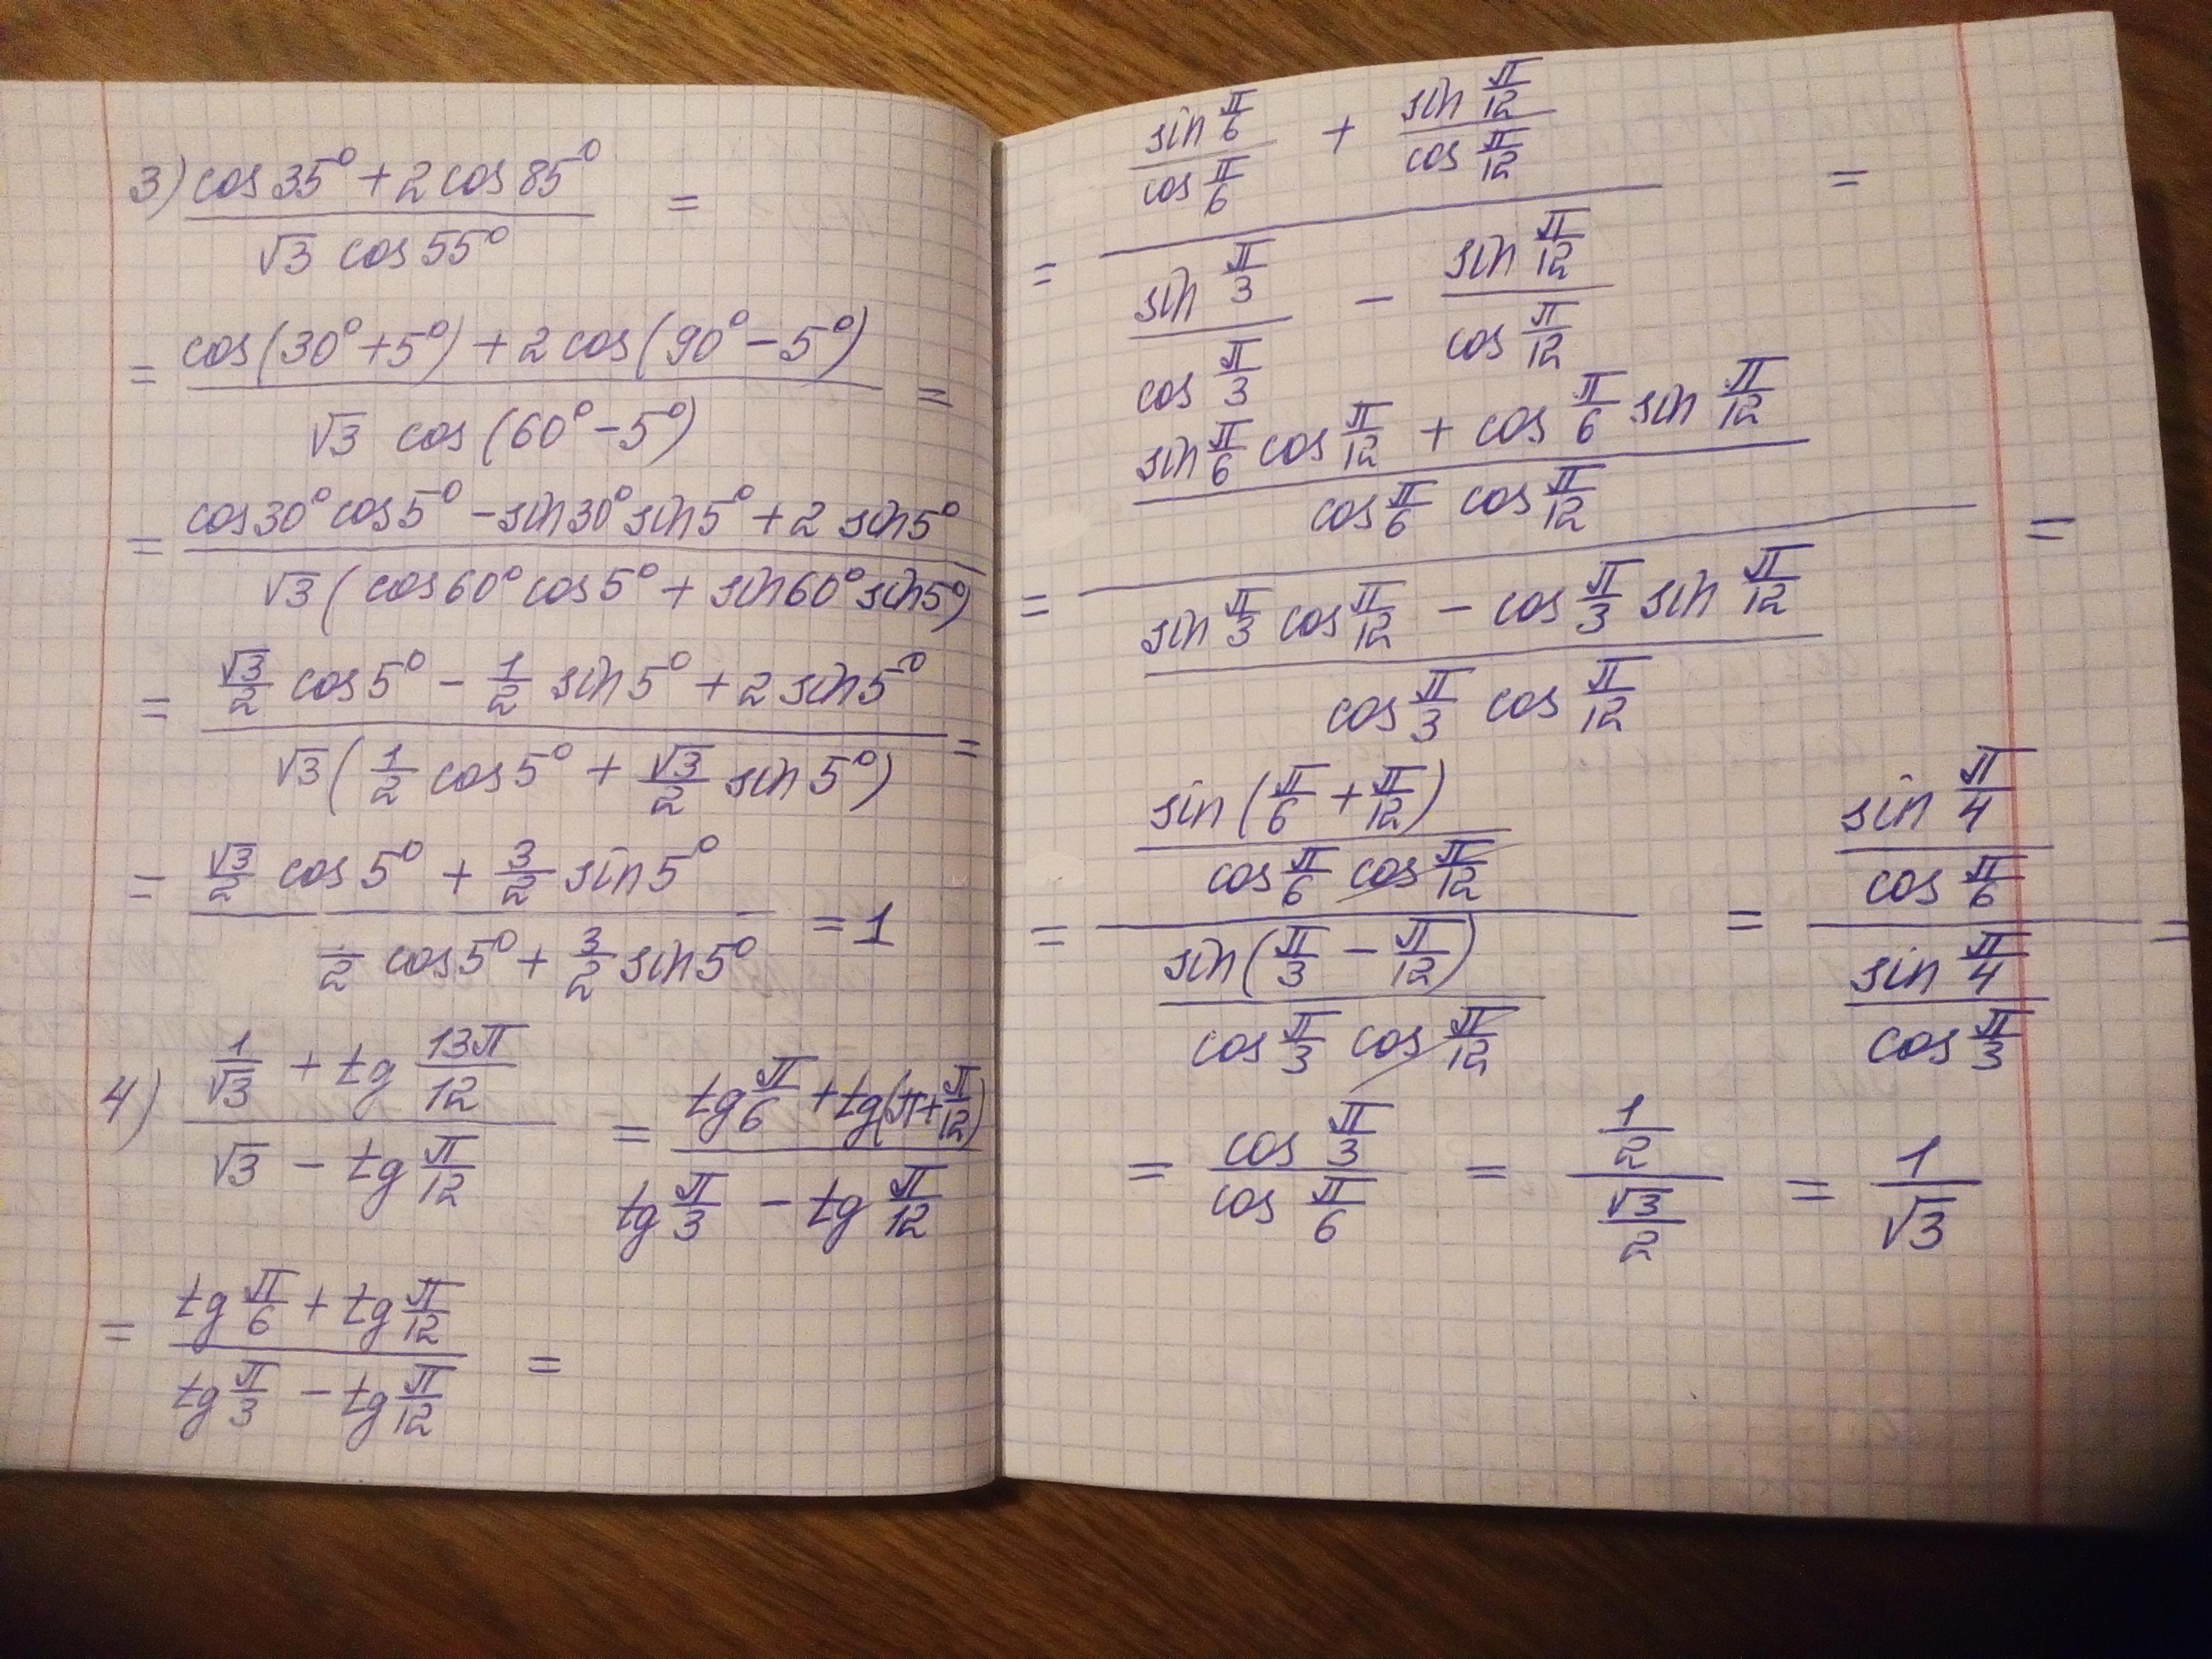 3) (cos 35° + 2 cos 85°) / (√3 cos 55°) =
= (cos(30° + 5°) + 2 cos(90° − 5°)) / (√3 cos(60° − 5°)) =
= (cos 30° cos 5° − sin 30° sin 5° + 2 sin 5°) / (√3 (cos 60° cos 5° + sin 60° sin 5°))
= (√3/2 cos 5° − 1/2 sin 5° + 2 sin 5°) / (√3 (1/2 cos 5° + √3/2 sin 5°)) =
= (√3/2 cos 5° + 3/2 sin 5°) / (/2 cos 5° + 3/2 sin 5°) = 1
4) (1/√3 + tg 13π/12) / (√3 − tg π/12) = (tg π/6 + tg(π + π/12)) / (tg π/3 − tg π/12)
= (tg π/6 + tg π/12) / (tg π/3 − tg π/12) =
= (sin π/6 / cos π/6 + sin π/12 / cos π/12) / (sin π/3 / cos π/3 − sin π/12 / cos π/12) =
= ((sin π/6 cos π/12 + cos π/6 sin π/12) / (cos π/6 cos π/12)) / ((sin π/3 cos π/12 − cos π/3 sin π/12) / (cos π/3 cos π/12)) =
= (sin(π/6 + π/12) / (cos π/6 cos π/12)) / (sin(π/3 − π/12) / (cos π/3 cos π/12)) = (sin π/4 / cos π/6) / (sin π/4 / cos π/3) =
= cos π/3 / cos π/6 = (1/2) / (√3/2) = 1/√3